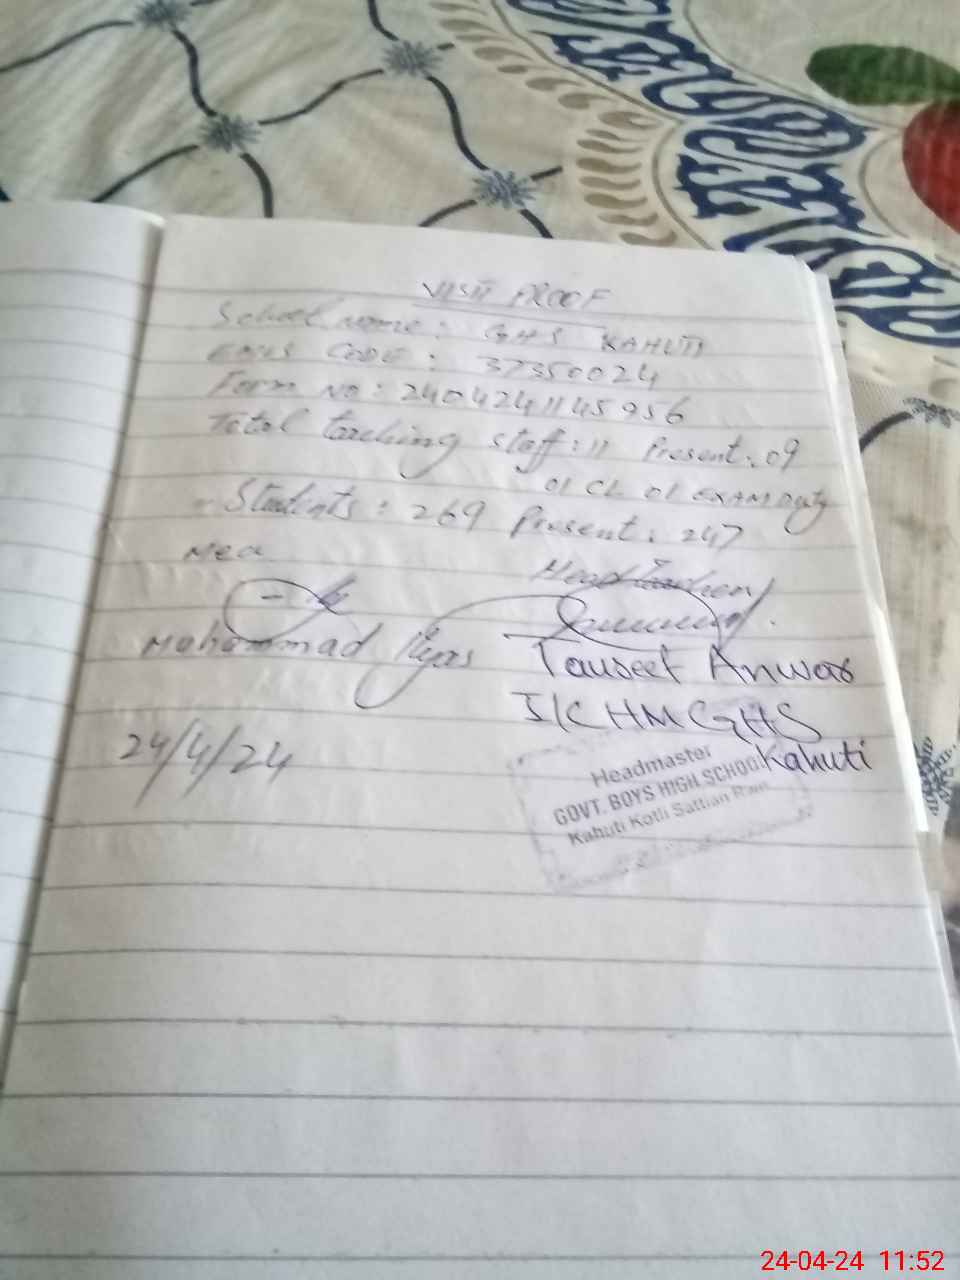 VISIT PROOF
School Name: GHS KAHUTI
EMIS CODE: 37350024
Form No: 24042411145956
Total teaching staff: 11 Present: 09
01 CL 01 EXAM Duty
Students: 269 Present: 247
Mea
Head Teacher
Muhammad Ilyas
Tauseef Anwar
I/C HM GHS
Kahuti
24/4/24
Headmaster
GOVT. BOYS HIGH SCHOOL
Kahuti Kotli Sattian Rwp
24-04-24 11:52